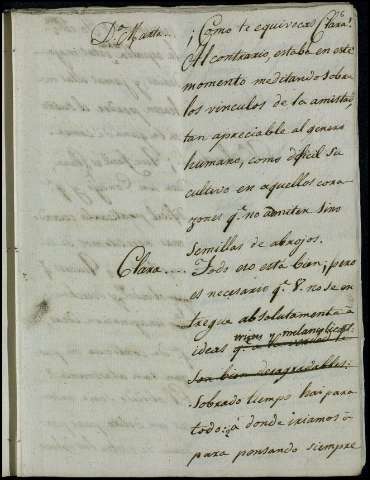 76
Dª. Marta.. ¡Como te equivocas Clara!
Al contrario, estaba en este
momento meditando sobre
los vinculos de la amistad,
tan apreciable al genero
humano, como dificil su
cultivo en aquellos cora-
zones qᵉ. no admiten sino
semillas de abrojos.
Clara.... Todo eso está bien; pero
es necesario qᵉ. V. no se en-
tregue absolutamente á
tristes y melancolicas
ideas qᵉ. a la verdad
son bien desagradables:
Sobrado tiempo hai para
todo: ¿á donde iriamos á
parar pensando siempre